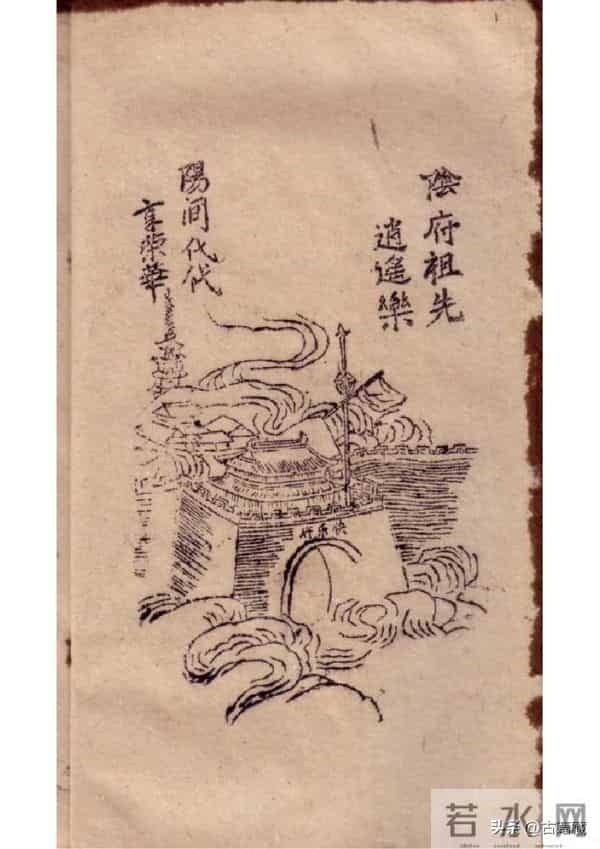 陰府祖先
逍遥樂
陽间代代
享荣華
快乐好
若水网
头条@古籍藏